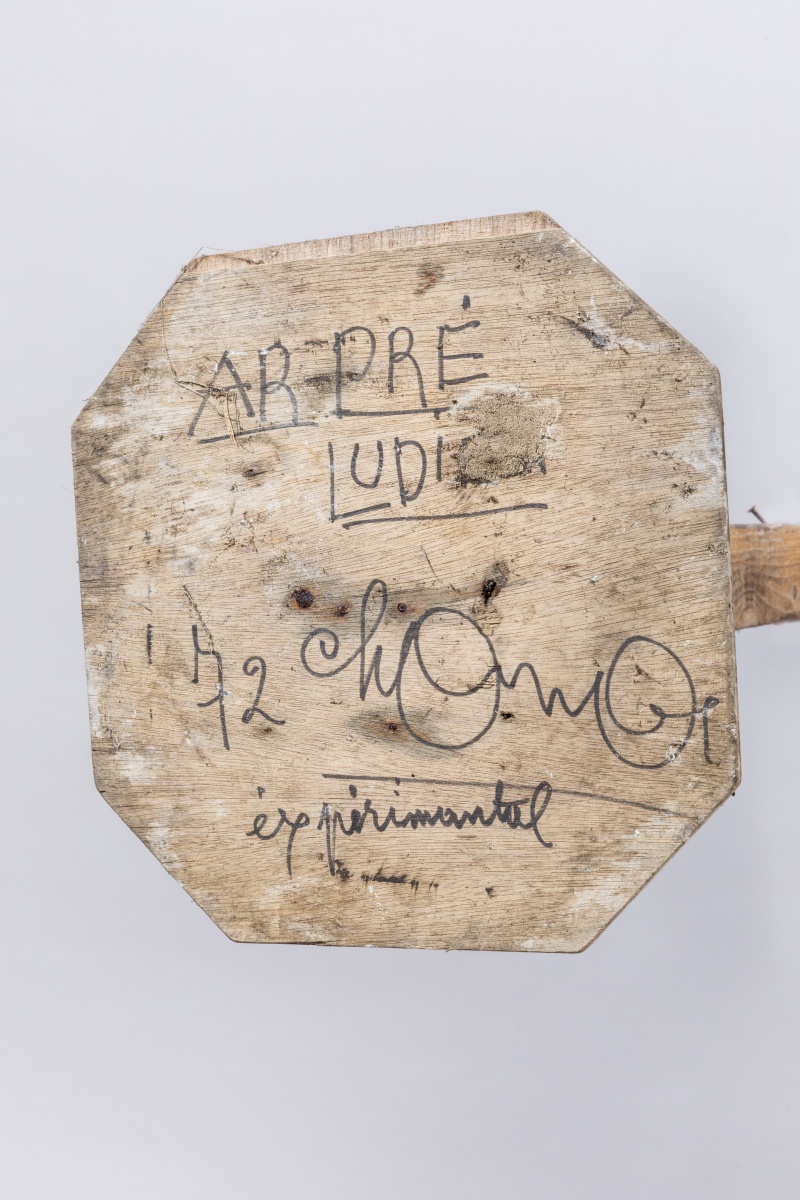 AR PRÉ
LUDI
'72 chomo
éxpérimantal